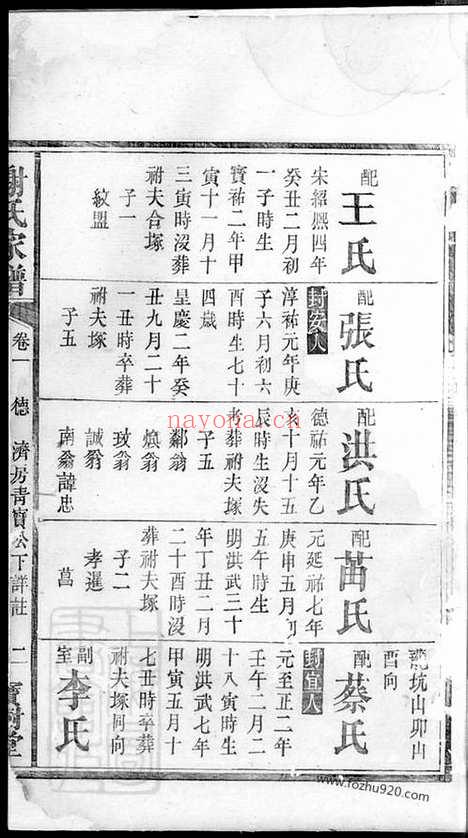 配
王氏
宋紹熙四年
癸丑二月初
一子時生
寶祐二年甲
寅十一月十
三寅時沒葬
祔夫合塚
子一
紋盟
配
張氏
封安人
淳祐元年庚
子六月初六
酉時生七十
四歲
皇慶二年癸
丑九月二十
一丑時卒葬
祔夫塚
子五
配
洪氏
德祐元年乙
亥十月十五
辰時生沒失
考葬祔夫塚
子五
鄰翁
煥翁
玫翁
誠翁
南翁諱忠
配
苗氏
元延祐七年
庚申五月初
五午時生
明洪武三十
年丁丑二月
二十酉時沒
葬祔夫塚
子二
孝暹
菖
龍坑山卯山
酉向
配
蔡氏
封宜人
元至正二年
壬午二月二
十八寅時生
明洪武七年
甲寅五月十
七丑時卒葬
祔夫塚同向
副室
李氏
謝氏家譜
卷一
德濟房青寶公下詳註
二
寶樹堂
nayona.cn
www.fozhu920.com